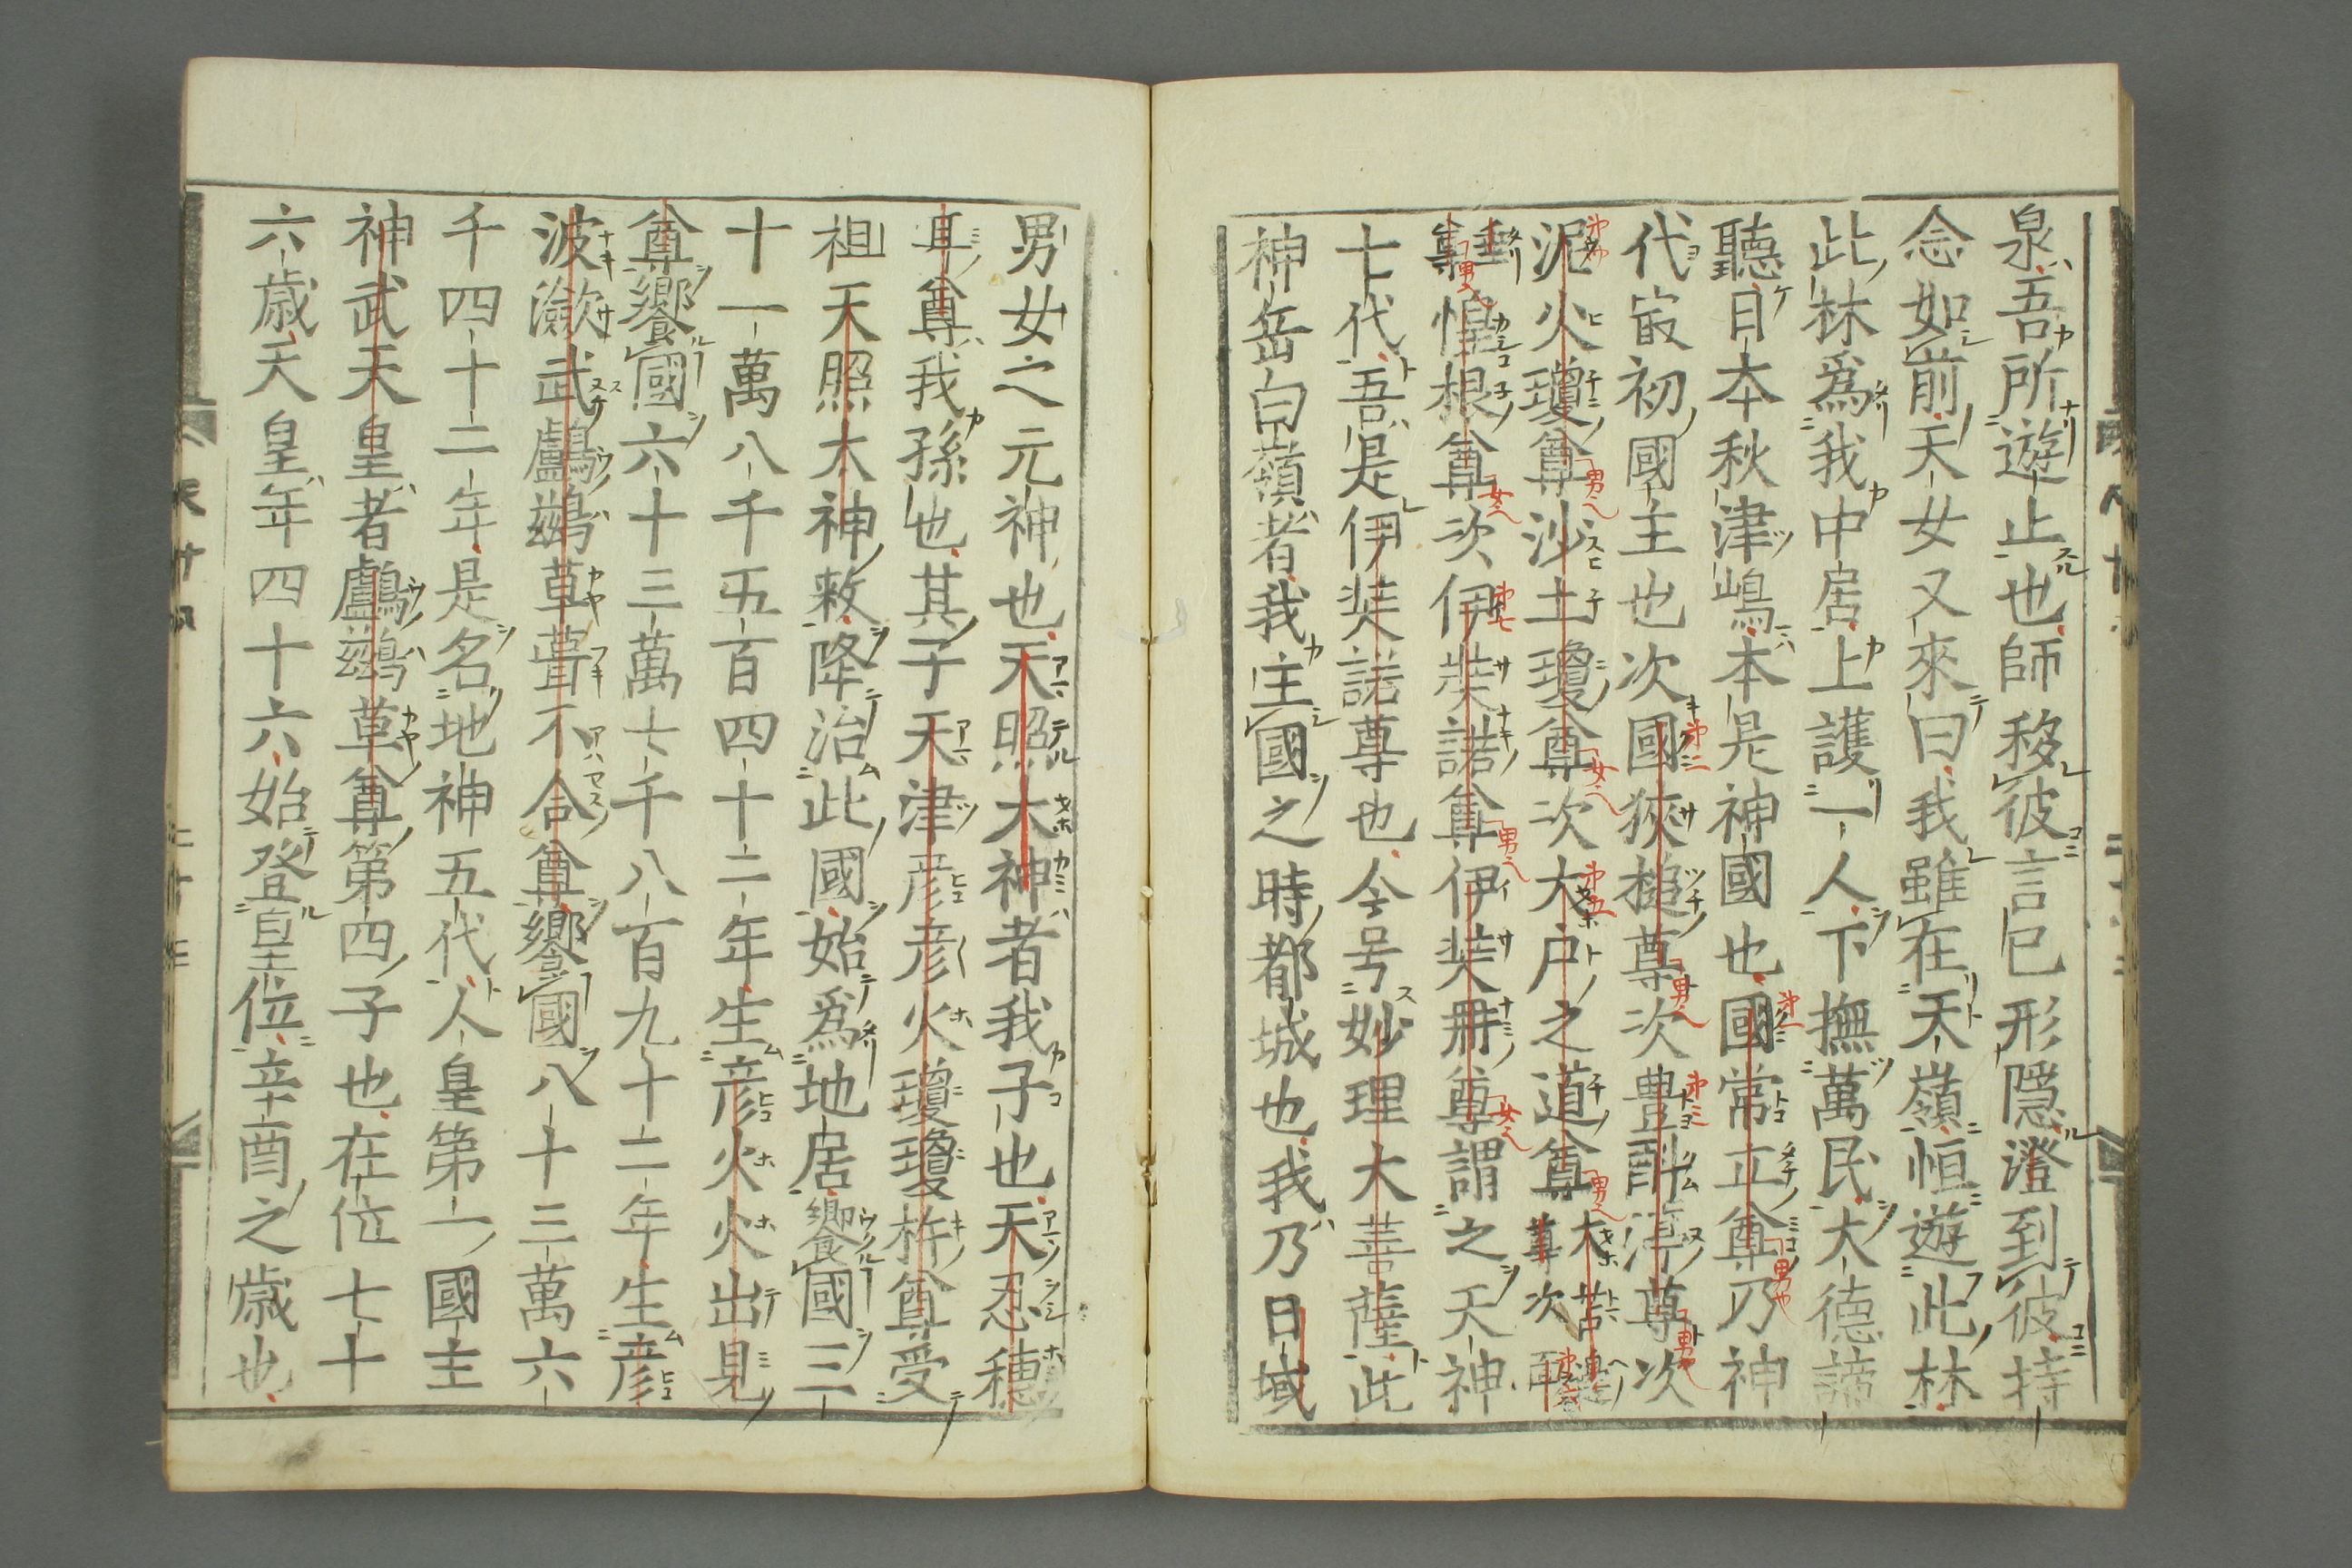 泉吾所遊止也師移彼言已形隱澄到彼持
念如前天女又來曰我雖在天嶺恒遊此林
此林爲我中居上護一人下撫萬民太德諦
聽日本秋津嶋本是神國也國常立尊乃神
代最初國主也次國狹槌尊次豊斟渟尊次
泥火瓊尊沙土瓊尊次大戶之道尊大苫邊尊次面
垂尊惶根尊次伊弉諾尊伊弉冊尊謂之天神
七代吾是伊弉諾尊也今号妙理大菩薩此
神岳白嶺者我主國之時都城也我乃日域
男女之元神也天照大神者我子也天忍穗
耳尊我孫也其子天津彦彦火瓊瓊杵尊受
祖天照太神敕降治此國始爲地居饗國三
十一萬八千五百四十二年生彦火火出見
尊饗國六十三萬七千八百九十二年生彦
波瀲武鸕鷀草葺不合尊饗國八十三萬六
千四十二年是名地神五代人皇第一國主
神武天皇者鸕鷀草尊第四子也在位七十
六歲天皇年四十六始登皇位辛酉之歲也